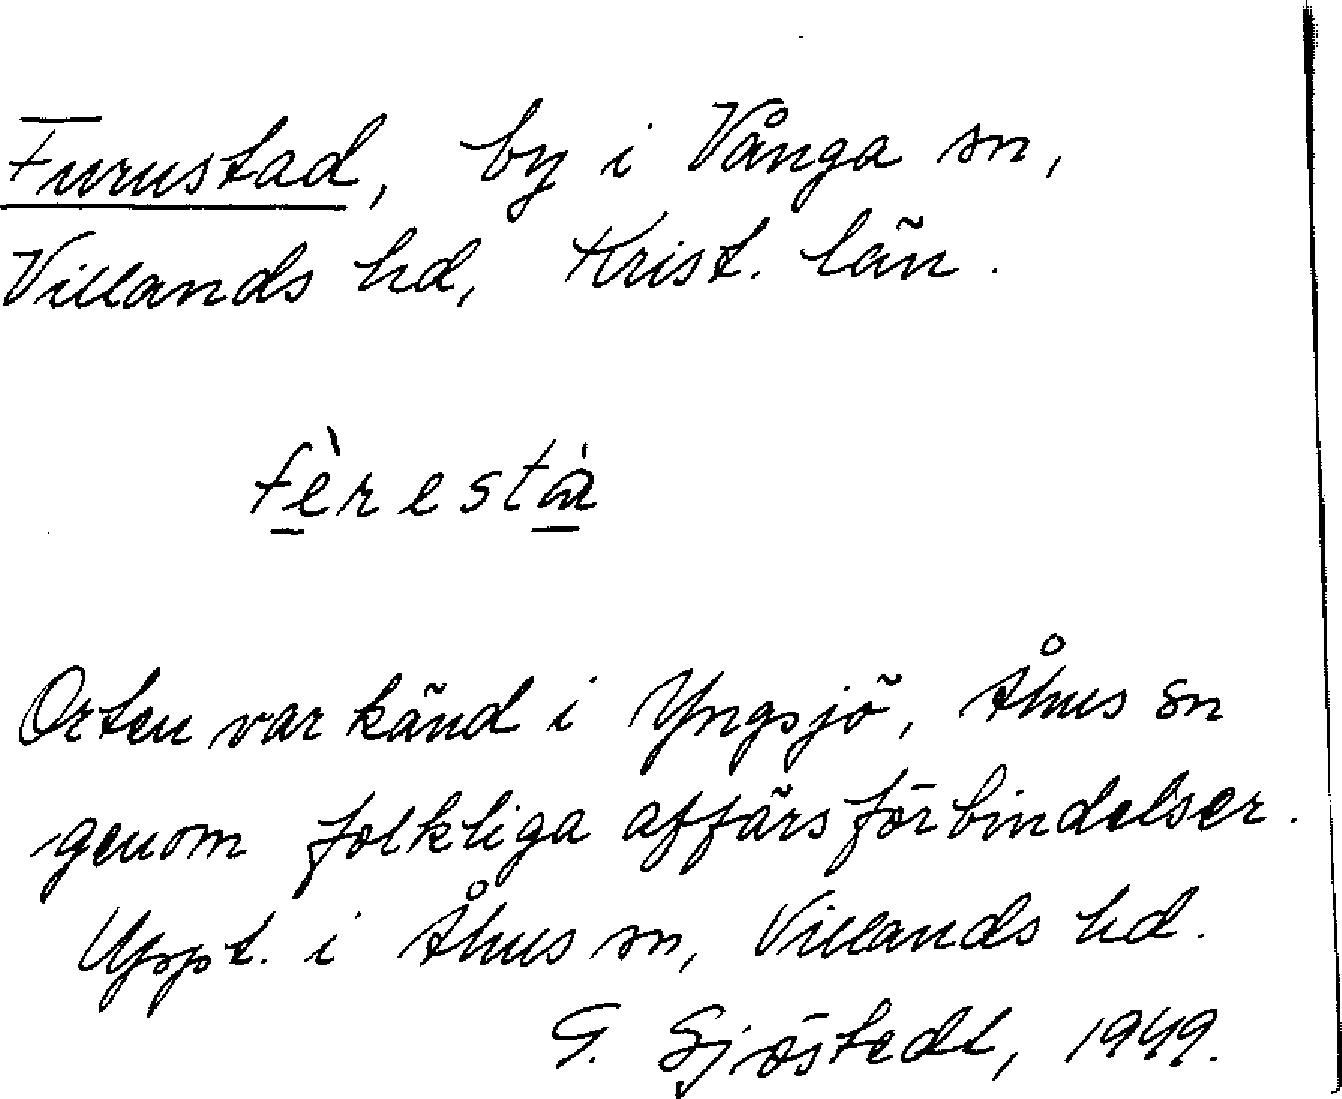 Furustad, by i Vånga sn,
Villands hd, Krist. län.
fèrestà
Orten var känd i Yngsjö, Åhus sn
genom folkliga affärsförbindelser.
Uppt. i Åhus sn, Villands hd.
G. Sjöstedt, 1949.